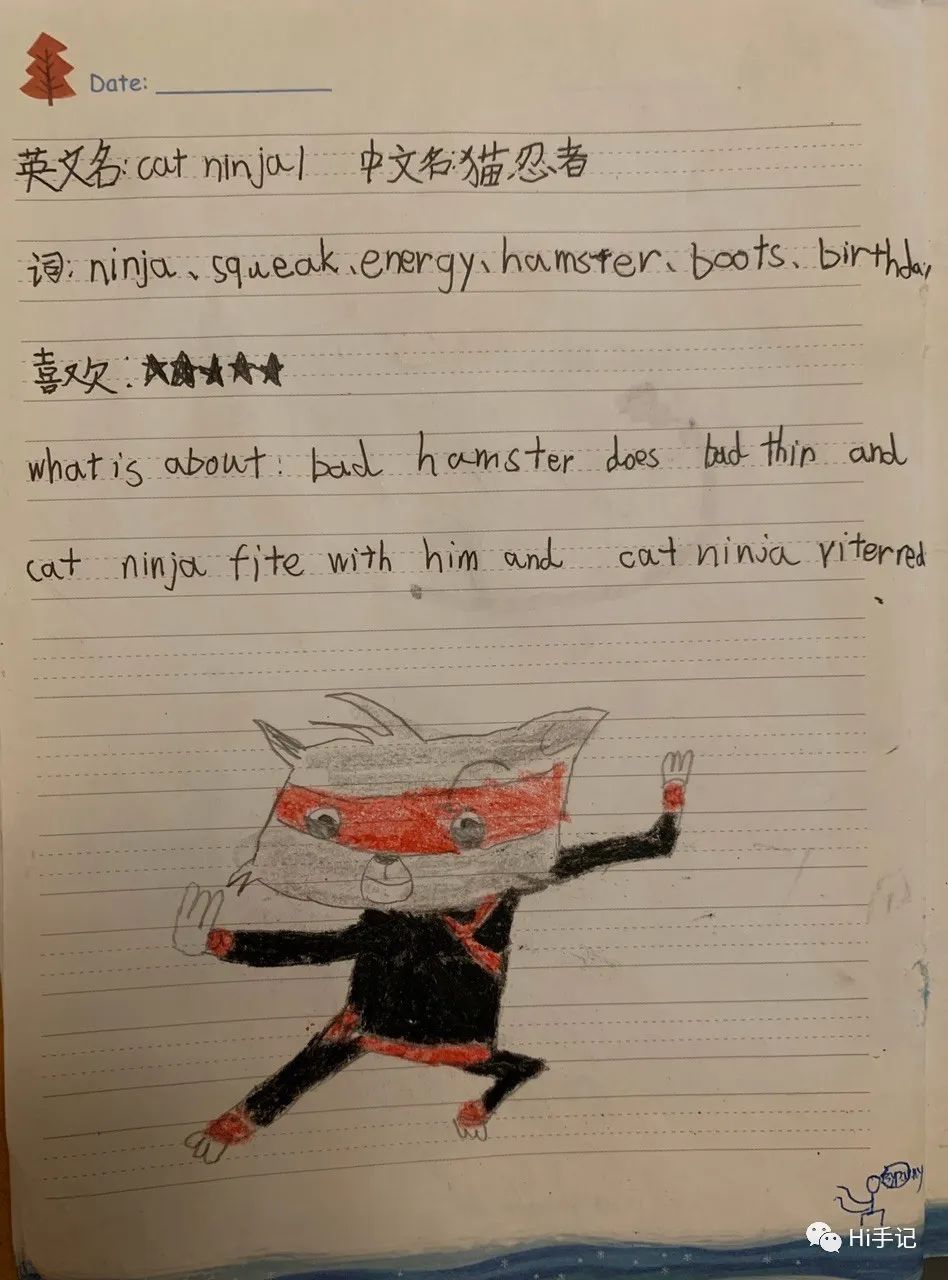 Date:
英文名: cat ninja 1 中文名: 猫忍者
词: ninja、squeak、energy、hamster、boots、birthday
喜欢: ★★★★★
what is about: bad hamster does bad thin and
cat ninja fite with him and cat ninja viterred
Hi手记